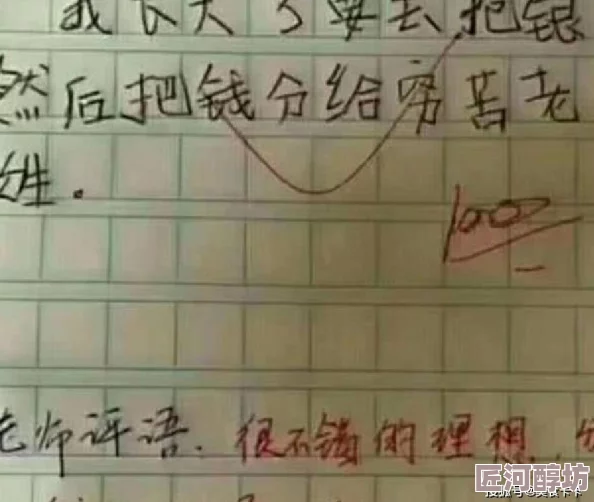 我长大了要去把银
然后把钱分给穷苦老
姓。
100
老师评语.很不错的理想.
匠河醇坊